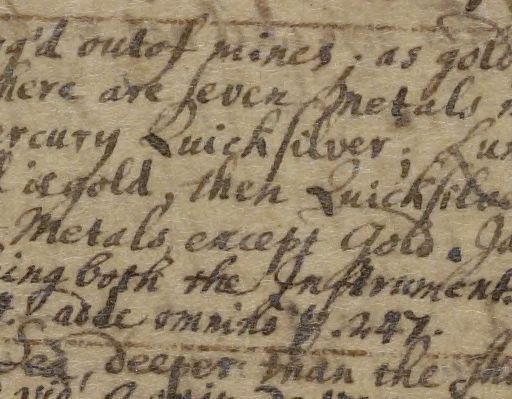 g'd out of mines; as gold
here are seven Metals
ercury Quicksilver; Lun
is gold, then Quicksilve
Metals, except Gold. Ja
ing both the Instrument.
adde omnino p. 247.
Sea, deeper than the